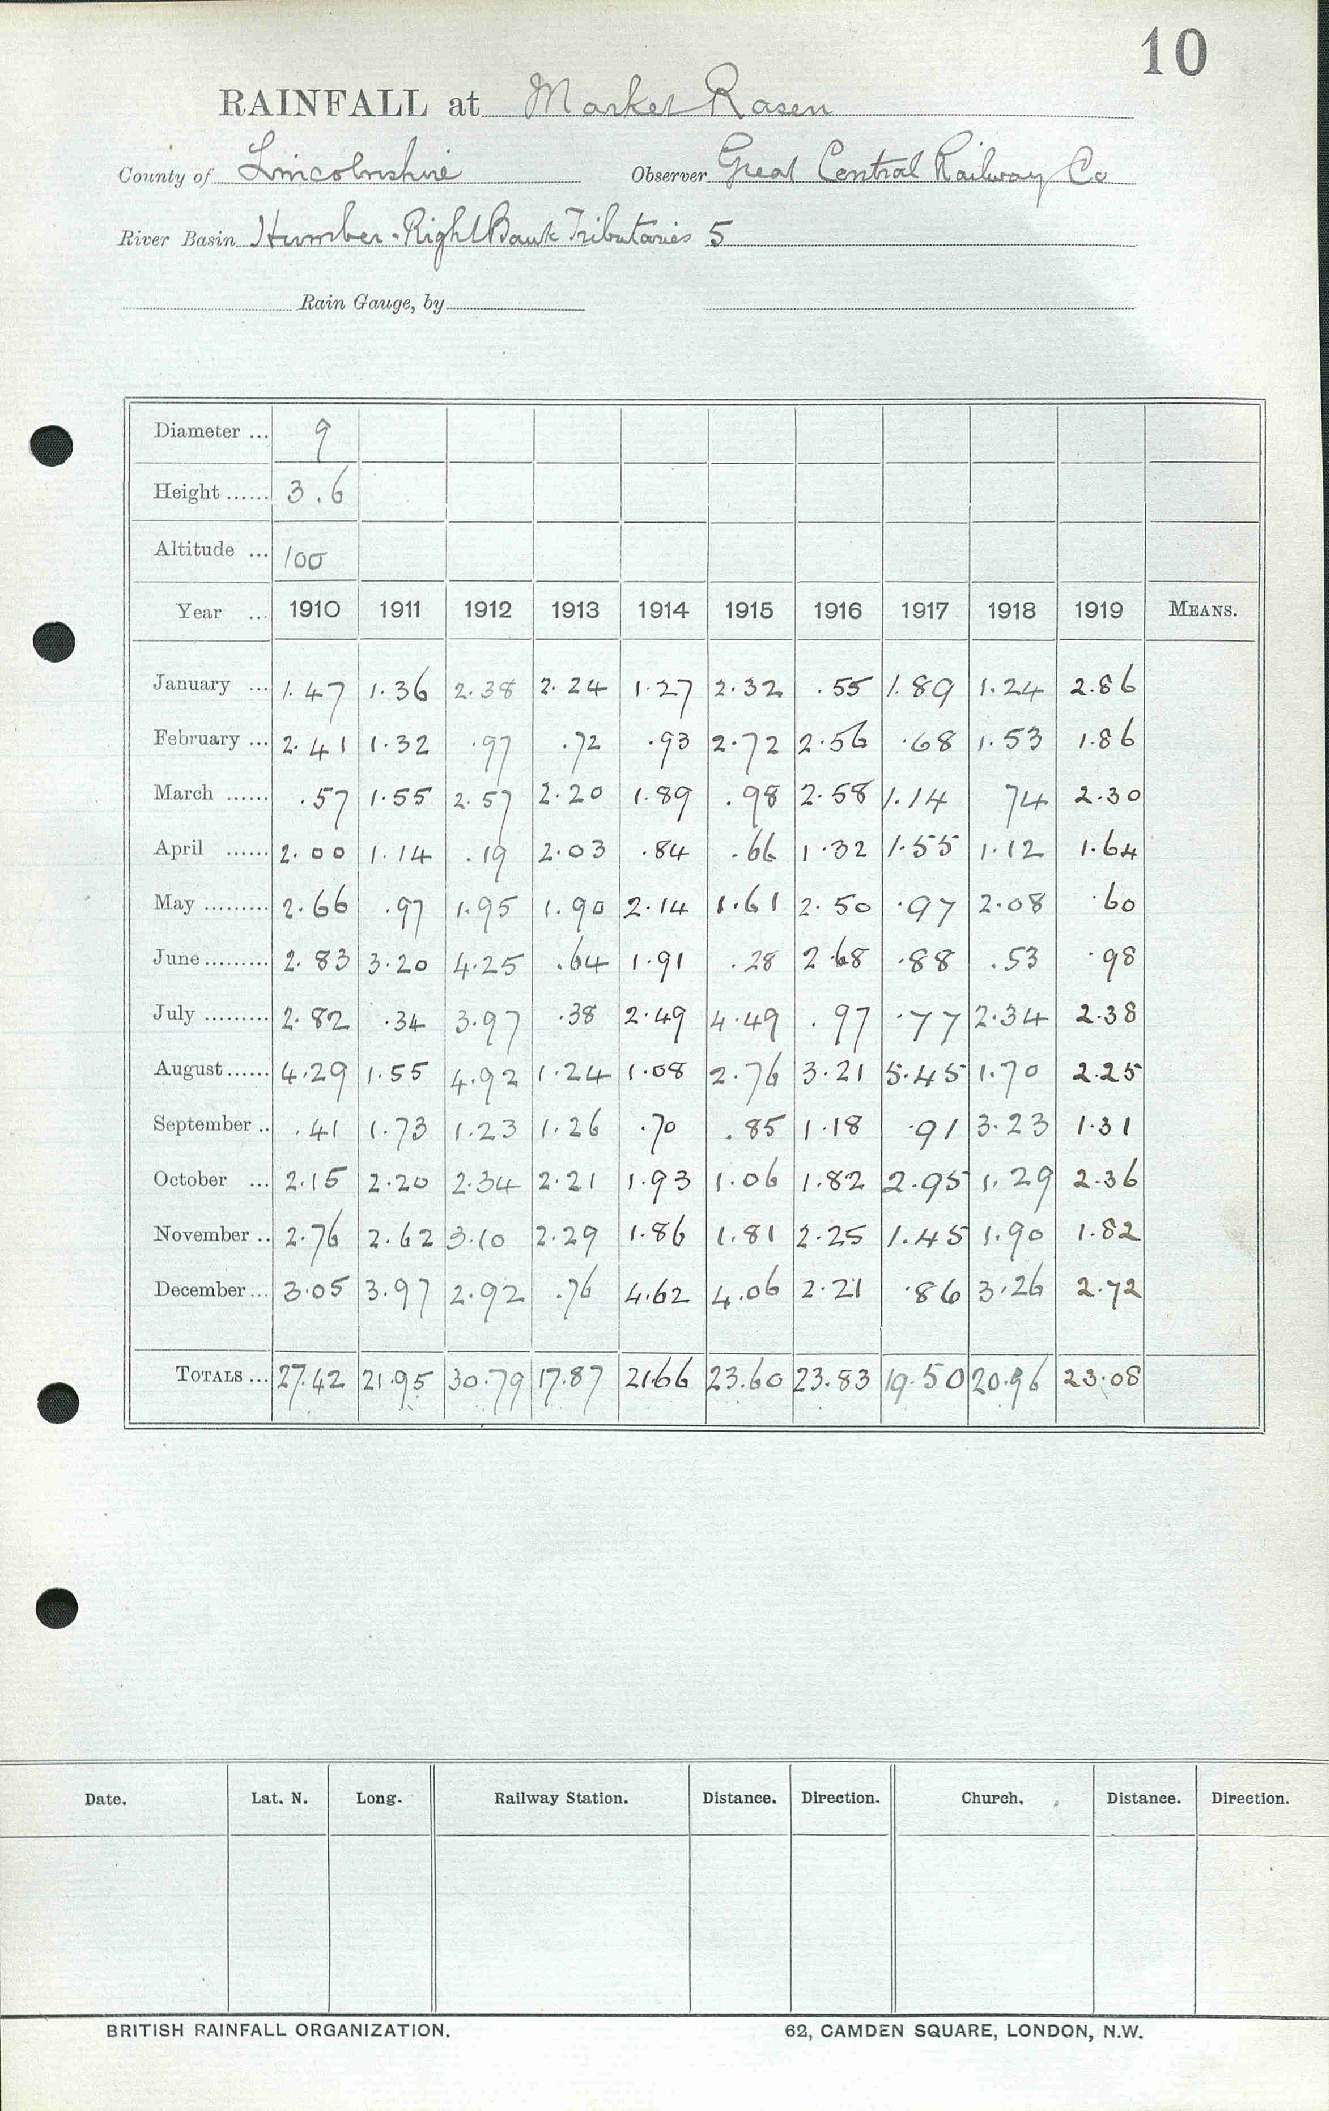 10
RAINFALL at Market Rasen
County of Lincolnshire Observer Great Central Railway Co
River Basin Humber - Right Bank Tributaries 5
Rain Gauge, by
Diameter ... 9
Height ...... 3.6
Altitude ... 100
Year ... 1910 1911 1912 1913 1914 1915 1916 1917 1918 1919 MEANS.
January ... 1.47 1.36 2.38 2.24 1.27 2.32 .55 1.89 1.24 2.86
February ... 2.41 1.32 .97 .72 .93 2.72 2.56 .68 1.53 1.86
March ...... .57 1.55 2.57 2.20 1.89 .98 2.58 1.14 74 2.30
April ...... 2.00 1.14 .19 2.03 .84 .66 1.32 1.55 1.12 1.64
May ......... 2.66 .97 1.95 1.90 2.14 1.61 2.50 .97 2.08 .60
June ......... 2.83 3.20 4.25 .64 1.91 .28 2.68 .88 .53 .98
July ......... 2.82 .34 3.97 .38 2.49 4.49 .97 .77 2.34 2.38
August ...... 4.29 1.55 4.92 1.24 1.08 2.76 3.21 5.45 1.70 2.25
September .. .41 1.73 1.23 1.26 .70 .85 1.18 .91 3.23 1.31
October ... 2.15 2.20 2.34 2.21 1.93 1.06 1.82 2.95 1.29 2.36
November .. 2.76 2.62 3.10 2.29 1.86 1.81 2.25 1.45 1.90 1.82
December ... 3.05 3.97 2.92 .76 4.62 4.06 2.21 .86 3.26 2.72
TOTALS ... 27.42 21.95 30.79 17.87 21.66 23.60 23.83 19.50 20.96 23.08
Date. Lat. N. Long. Railway Station. Distance. Direction. Church. Distance. Direction.
BRITISH RAINFALL ORGANIZATION. 62, CAMDEN SQUARE, LONDON, N.W.